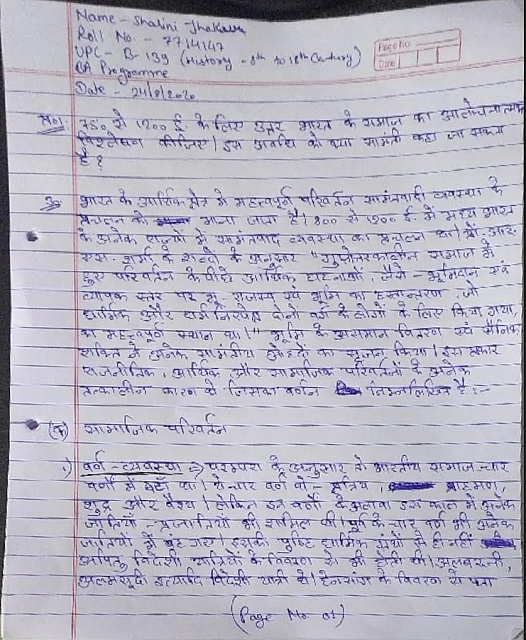 Name - Shalini Jhakawa
Roll No. - 77141147
UPC - B-139 (History - 8th to 18th Century)
BA Programme
Date - 24/8/2020
Page No.
Date
प्र०1. 750 से 1200 ई. के लिए उत्तर भारत के समाज का आलोचनात्मक
विश्लेषण कीजिए। इस अवधि को क्या सामंती कहा जा सकता
है ?
उ० भारत के आर्थिक क्षेत्र में महत्वपूर्ण परिवर्तन सामंतवादी व्यवस्था के
को माना जाता है। 800 से 1200 ई. में मध्य भारत
के अनेक राज्यों में सामंतवाद व्यवस्था का प्रचलन था। प्रो. आर.
एस. शर्मा के शब्दों के अनुसार "गुप्तोत्तरकालीन समाज में
हुए परिवर्तन के पीछे आर्थिक घटनाओं जैसे - भूमिदान एवं
व्यापक स्तर पर भू राजस्व एवं भूमि का हस्तान्तरण, जो
धार्मिक और धर्मनिरपेक्ष दोनों वर्ग के लोगों के लिए किया गया,
का महत्वपूर्ण स्थान था।" भूमि के असमान वितरण एवं सैनिक
शक्ति ने अनेक सामंतीय ओहदों का सृजन किया। इस प्रकार
राजनीतिक, आर्थिक और सामाजिक परिवर्तनों के अनेक
तत्कालीन कारण थे जिसका वर्णन निम्नलिखित है :-
(क) सामाजिक परिवर्तन
i) वर्ण - व्यवस्था => परम्परा के अनुसार तो भारतीय समाज चार
वर्णों में बँटा था। ये चार वर्ण थे - क्षत्रिय, ब्राह्मण,
शुद्र और वैश्य। लेकिन इन वर्णों के अलावा इस काल में अनेक
जातियाँ - प्रजातियाँ भी शामिल थी। पूर्व के चार वर्ण भी अनेक
जातियों में बट गए। इसकी पुष्टि धार्मिक ग्रंथों से ही नहीं
अपितु विदेशी यात्रियों के विवरण से भी होती थी। अलबरूनी,
अलमसूदी इत्यादि विदेशी यात्री थे। हेनसांग के विवरण से पता
(Page No. 01)